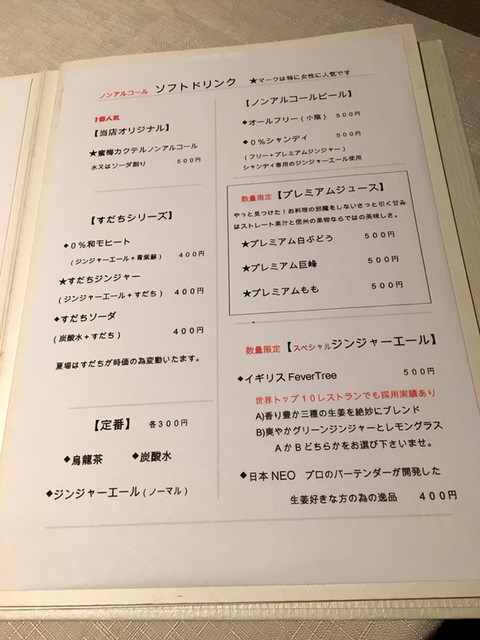 ノンアルコール ソフトドリンク ★マークは特に女性に人気です
1番人気
【当店オリジナル】
★蜜梅カクテルノンアルコール
水又はソーダ割り 500円
【すだちシリーズ】
◆0%和モヒート
(ジンジャーエール+青紫蘇) 400円
★すだちジンジャー
(ジンジャーエール+すだち) 400円
◆すだちソーダ
(炭酸水+すだち) 400円
夏場はすだちが時価の為変動いたます。
【定番】 各300円
◆烏龍茶 ◆炭酸水
◆ジンジャーエール(ノーマル)
【ノンアルコールビール】
◆オールフリー(小瓶) 500円
◆0%シャンディ 500円
(フリー+プレミアムジンジャー)
シャンディ専用のジンジャーエール使用
数量限定【プレミアムジュース】
やっと見つけた!お料理の邪魔をしないさっと引く甘み
はストレート果汁と信州の果物ならではの美味しさ。
★プレミアム白ぶどう 500円
★プレミアム巨峰 500円
★プレミアムもも 500円
数量限定【スペシャルジンジャーエール】
◆イギリス FeverTree 500円
世界トップ10レストランでも採用実績あり
A)香り豊か三種の生姜を絶妙にブレンド
B)爽やかグリーンジンジャーとレモングラス
AかBどちらかをお選び下さいませ。
◆日本 NEO プロのバーテンダーが開発した
生姜好きな方の為の逸品 400円